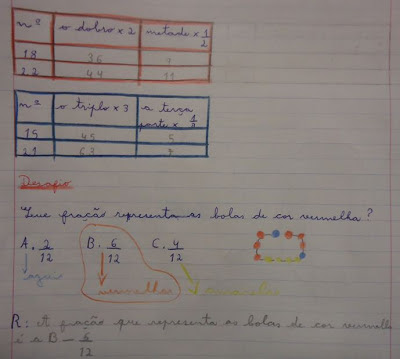 nº o dobro x 2 metade x 1/2
18 36 9
22 44 11
nº o triplo x 3 a terça parte x 1/3
15 45 5
21 63 7
Desafio
Que fração representa as bolas de cor vermelha?
A. 2/12 B. 6/12 C. 4/12
azuis
vermelhas amarelas
R: A fração que representa as bolas de cor vermelha
é a B – 6/12